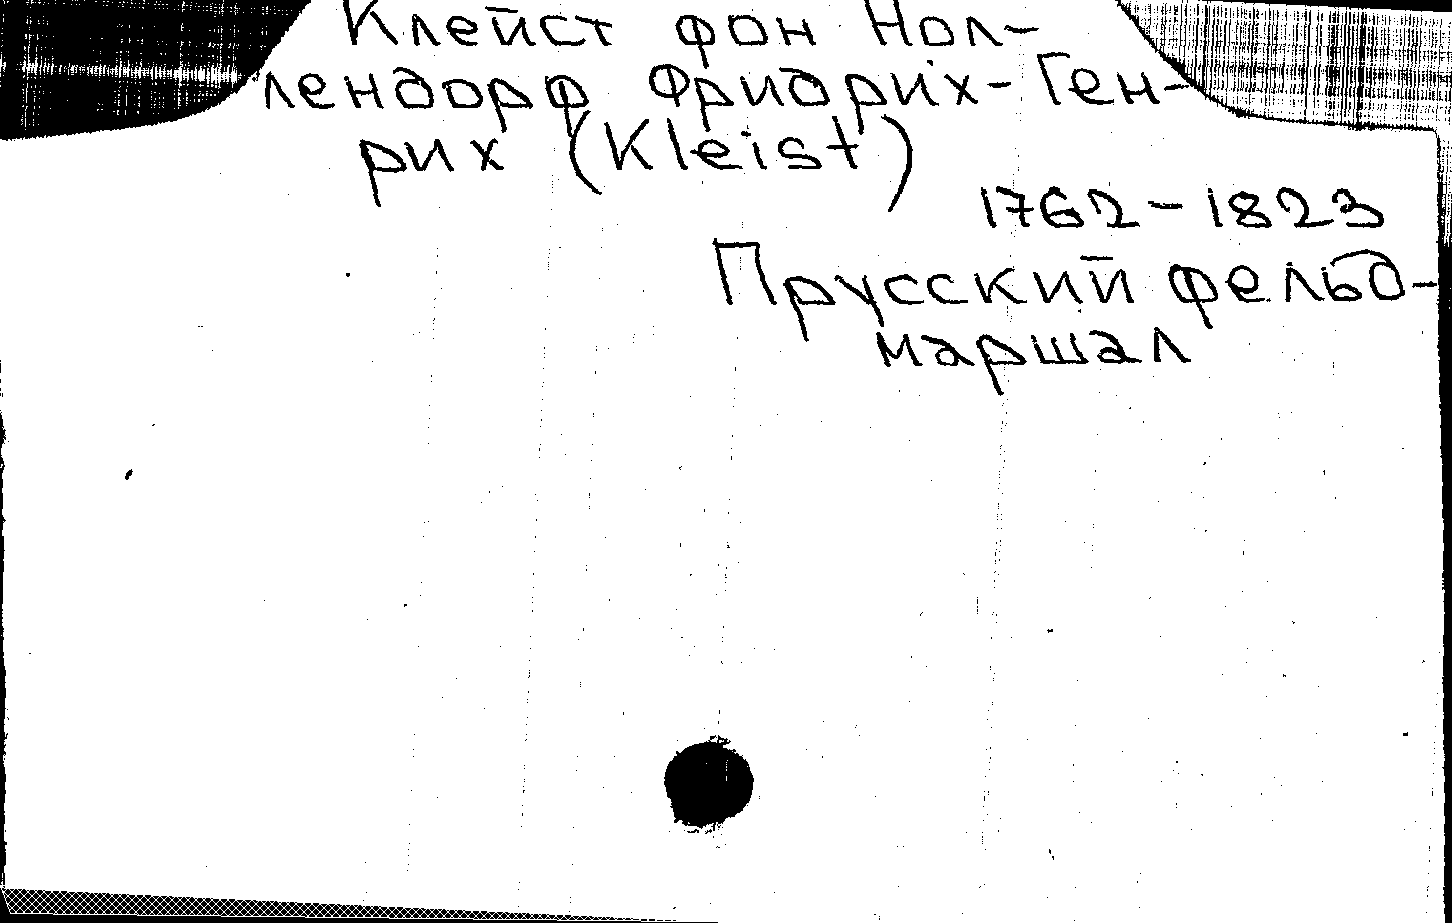 Клейст фон Нол-
лендорф Фридрих-Ген-
рих (Kleist)
1762-1823
Прусский фельд-
маршал